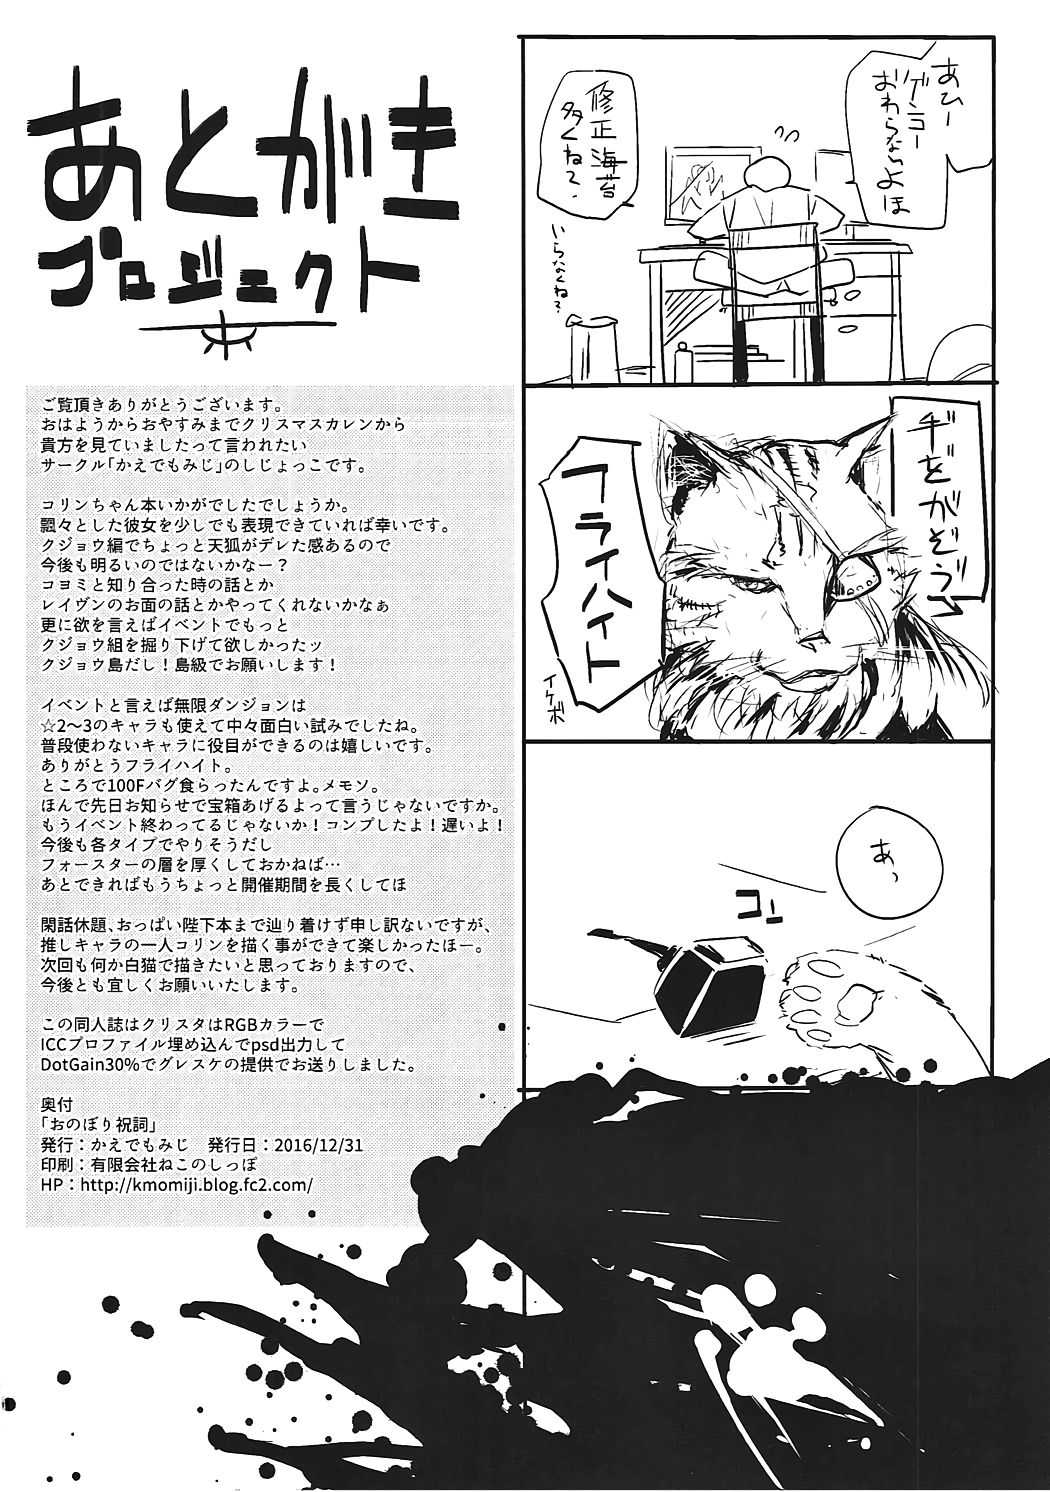 あとがき
プロジェクト
ご覧頂きありがとうございます。
おはようからおやすみまでクリスマスカレンから
貴方を見ていましたって言われたい
サークル｢かえでもみじ｣のしじょっこです。
コリンちゃん本いかがでしたでしょうか。
飄々とした彼女を少しでも表現できていれば幸いです。
クジョウ編でちょっと天狐がデレた感あるので
今後も明るいのではないかなー？
コヨミと知り合った時の話とか
レイヴンのお面の話とかやってくれないかなぁ
更に欲を言えばイベントでもっと
クジョウ組を掘り下げて欲しかったッ
クジョウ島だし！島級でお願いします！
イベントと言えば無限ダンジョンは
☆2〜3のキャラも使えて中々面白い試みでしたね。
普段使わないキャラに役目ができるのは嬉しいです。
ありがとうフライハイト。
ところで100Fバグ食らったんですよ｡メモソ。
ほんで先日お知らせで宝箱あげるよって言うじゃないですか。
もうイベント終わってるじゃないか！コンプしたよ！遅いよ！
今後も各タイプでやりそうだし
フォースターの層を厚くしておかねば…
あとできればもうちょっと開催期間を長くしてほ
閑話休題､おっぱい陛下本まで辿り着けず申し訳ないですが、
推しキャラの一人コリンを描く事ができて楽しかったほー。
次回も何か白猫で描きたいと思っておりますので、
今後とも宜しくお願いいたします。
この同人誌はクリスタはRGBカラーで
ICCプロファイル埋め込んでpsd出力して
DotGain30%でグレスケの提供でお送りしました。
奥付
｢おのぼり祝詞｣
発行：かえでもみじ　発行日：2016/12/31
印刷：有限会社ねこのしっぽ
HP：http://kmomiji.blog.fc2.com/
あひー
ゲンコー
おわらないよほ
修正海苔
多くね？
いらなくね？
チをがぞう゛
フライハイト
イケボ
あっ
コン